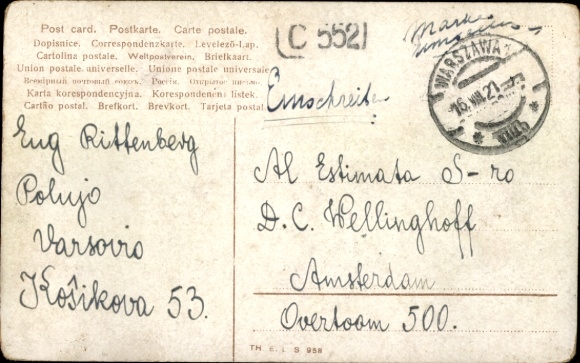 Post card. Postkarte. Carte postale.
Dopisnice. Correspondenzkarte. Levelező-Lap.
Cartolina postale. Weltpostverein. Briefkaart.
Union postale universelle. Unione postale universale
Всемірный почтовый союзъ. Россія. Открытое письмо.
Karta korespondencyjna. Korespondenční lístek.
Cartão postal. Brefkort. Brevkort. Tarjeta postal.
C 552
WARSZAWA 1
Einschreiben
Eug Rittenberg
Polujo
Varsovio
Koŝikova 53.
Al Estimata S-ro
D. C. Wellinghoff
Amsterdam
Overtoom 500.
S 958